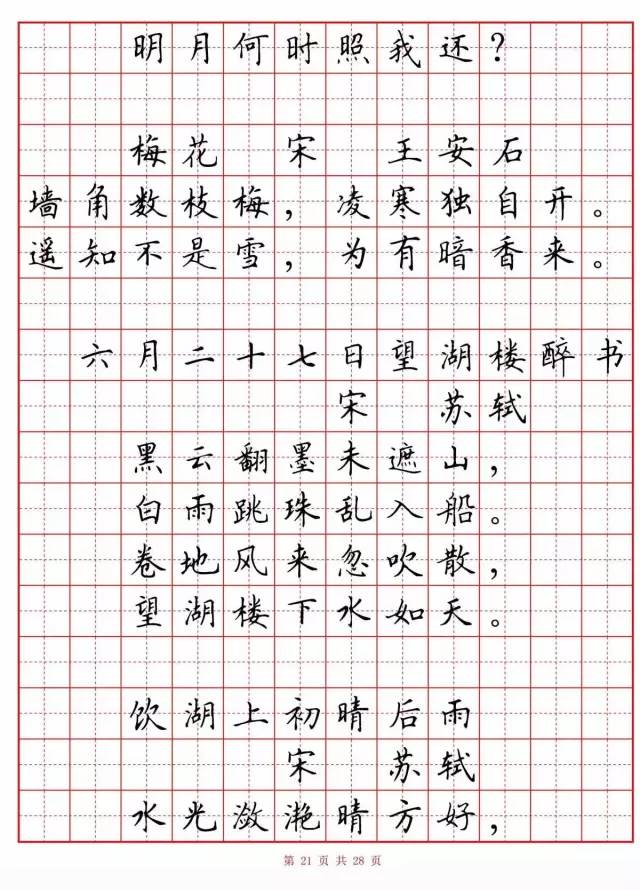 明月何时照我还？
梅花 宋 王安石
墙角数枝梅，凌寒独自开。
遥知不是雪，为有暗香来。
六月二十七日望湖楼醉书
宋 苏轼
黑云翻墨未遮山，
白雨跳珠乱入船。
卷地风来忽吹散，
望湖楼下水如天。
饮湖上初晴后雨
宋 苏轼
水光潋滟晴方好，
第 21 页 共 28 页